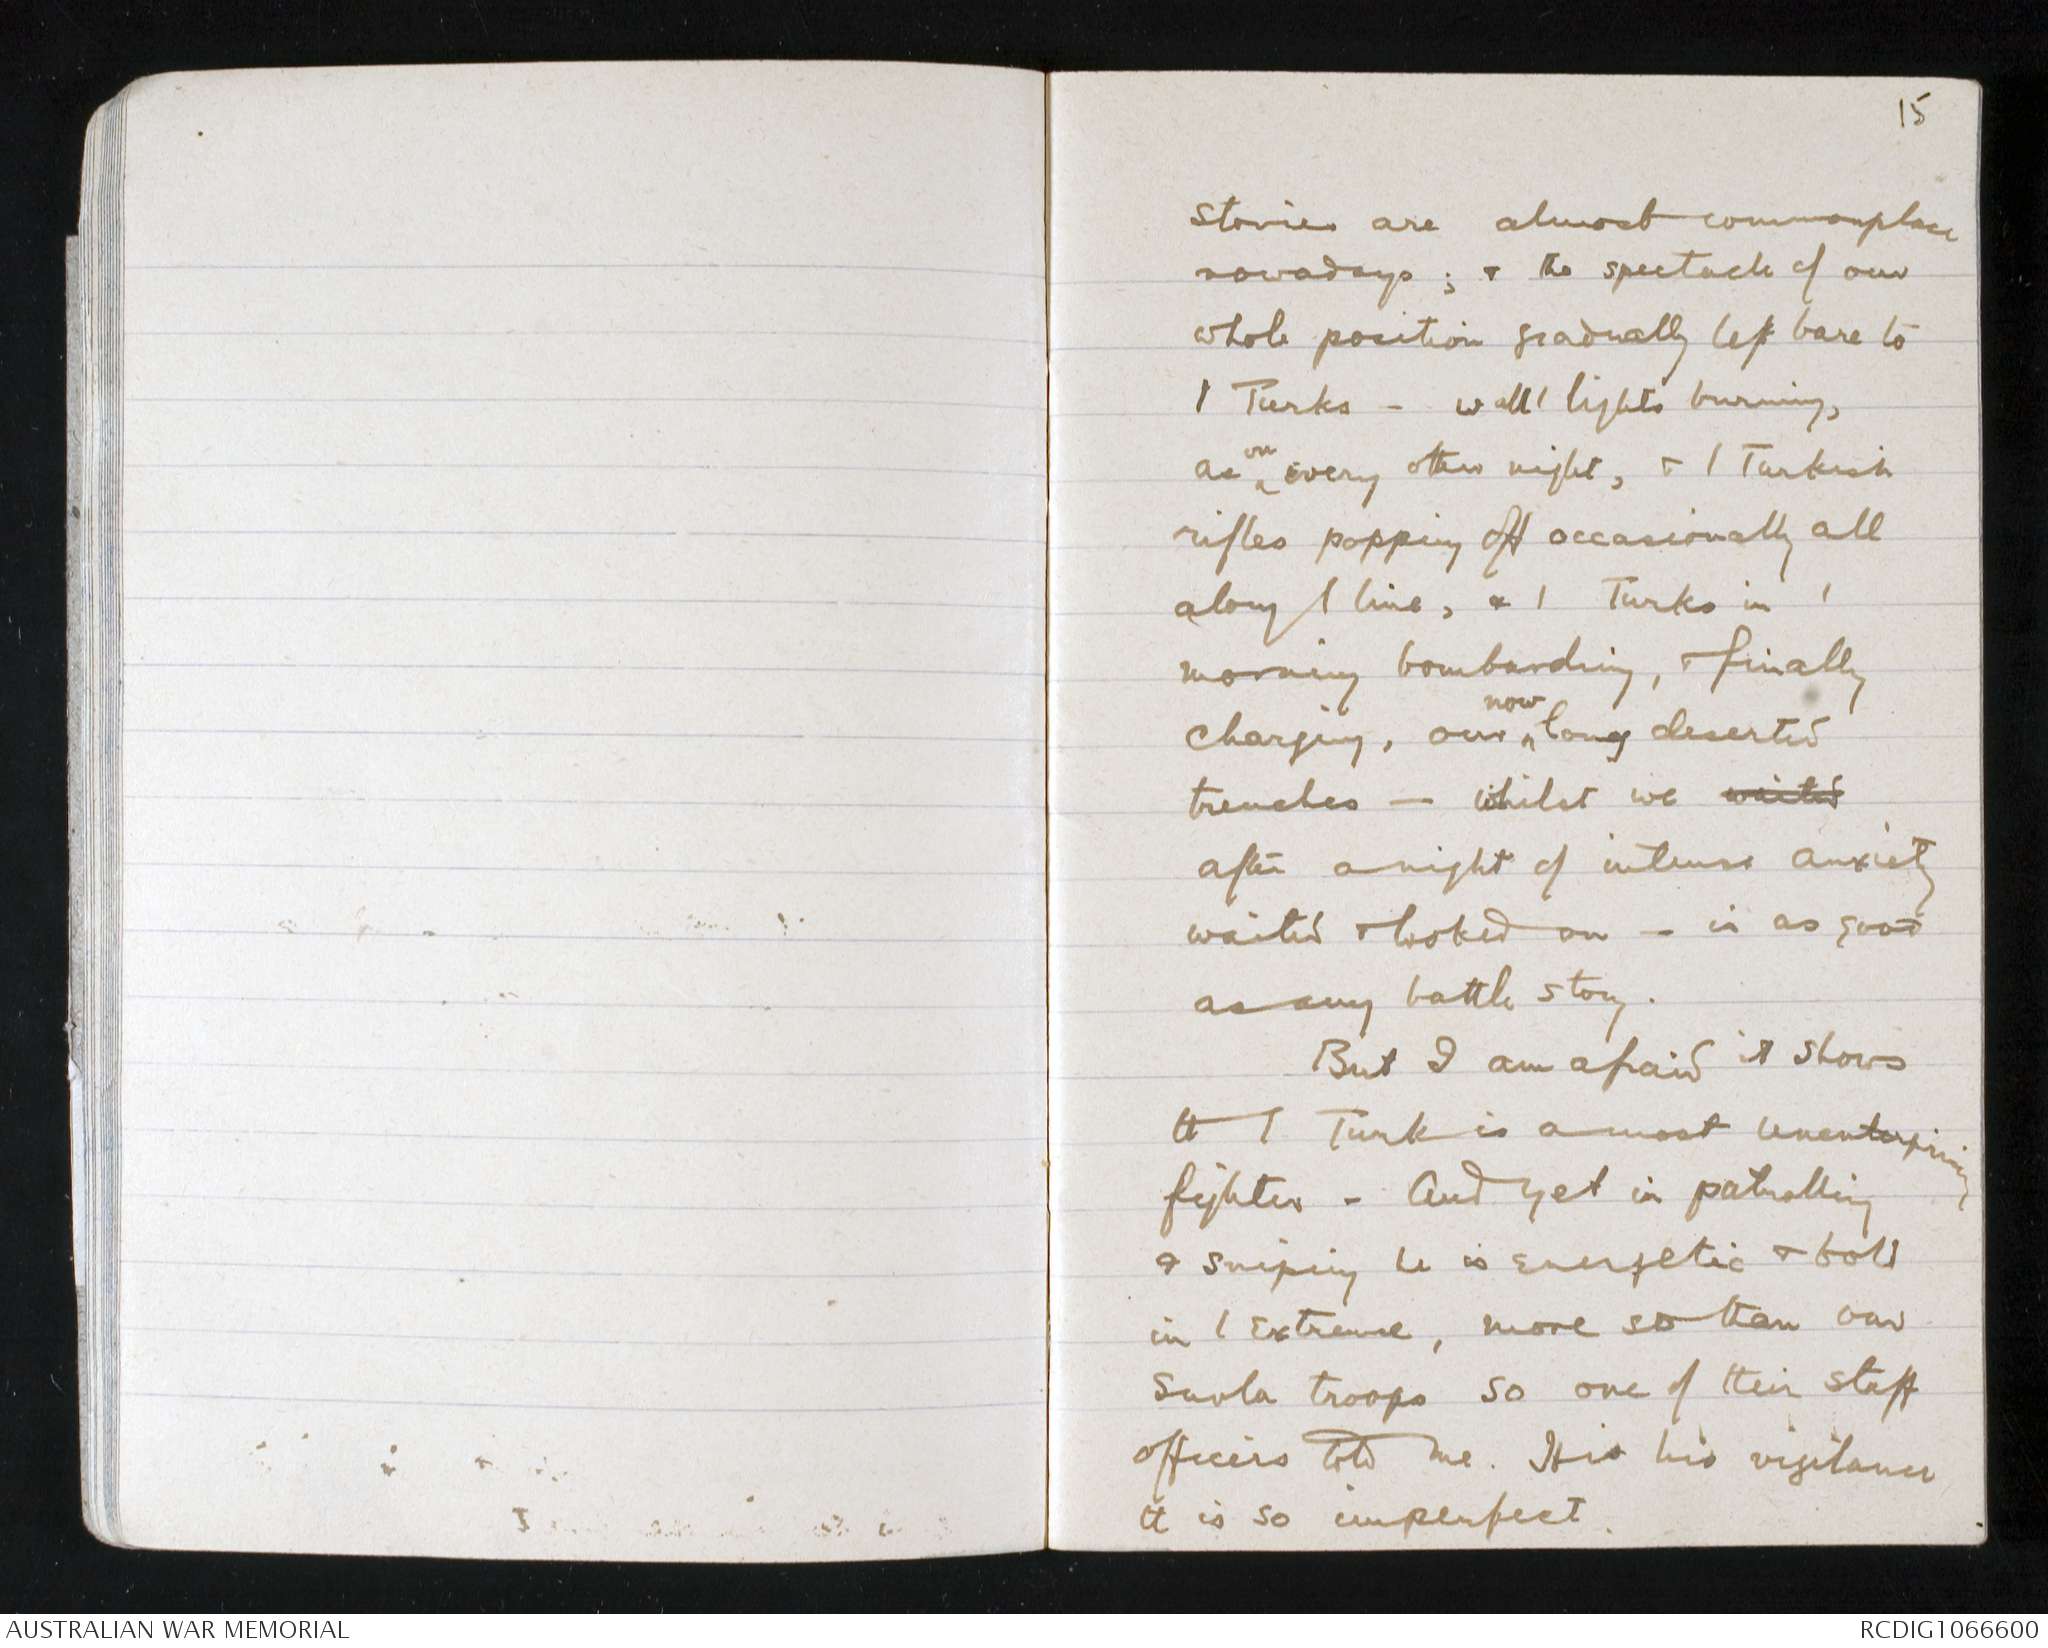 15
stories are almost commonplace
nowadays ; & the spectacle of our
whole position gradually left bare to
/ Turks - w all / lights burning,
as on every other night, & / Turkish
rifles popping off occasionally all
along / line, & / Turks in /
morning bombarding, & finally
charging, our now long deserted
trenches — whilst we waited
after a night of intense anxiety
waited & looked on - is as good
as any battle story.
But I am afraid it shows
tt / Turk is a most unenterprising
fighter - And yet in patrolling
& sniping he is energetic & bold
in / extreme, more so than our
Suvla troops so one of their staff
officers told me. It is his vigilance
tt is so imperfect.
AUSTRALIAN WAR MEMORIAL
RCDIG1066600